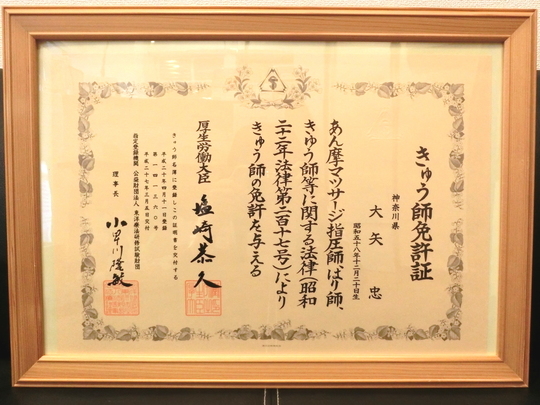 きゅう師免許証
神奈川県
大矢 忠
昭和五十八年十二月二十日生
あん摩マツサージ指圧師、はり師、
きゆう師等に関する法律(昭和
二十二年法律第二百十七号)により
きゆう師の免許を与える
厚生労働大臣 塩崎恭久
きゆう師名簿に登録しこの証明書を交付する
平成二十年四月十一日登録
平成二十七年三月五日交付
指定登録機関 公益財団法人 東洋療法研修試験財団
理事長 小早川隆敏